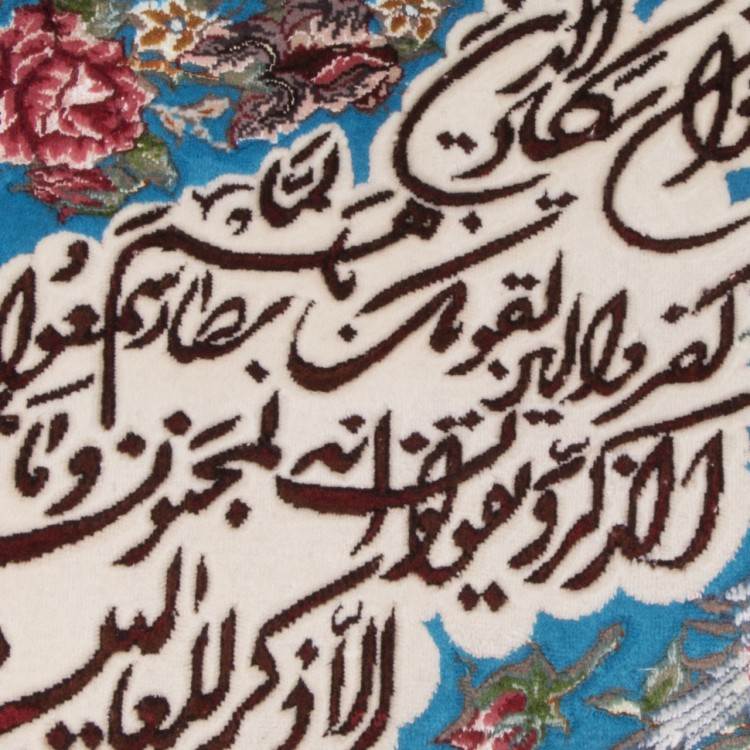 وان یکاد الذین
کفروا لیزلقونک بابصارهم لما سمعوا
الذکر و یقولون انه لمجنون و ما
الا ذکر للعالمین